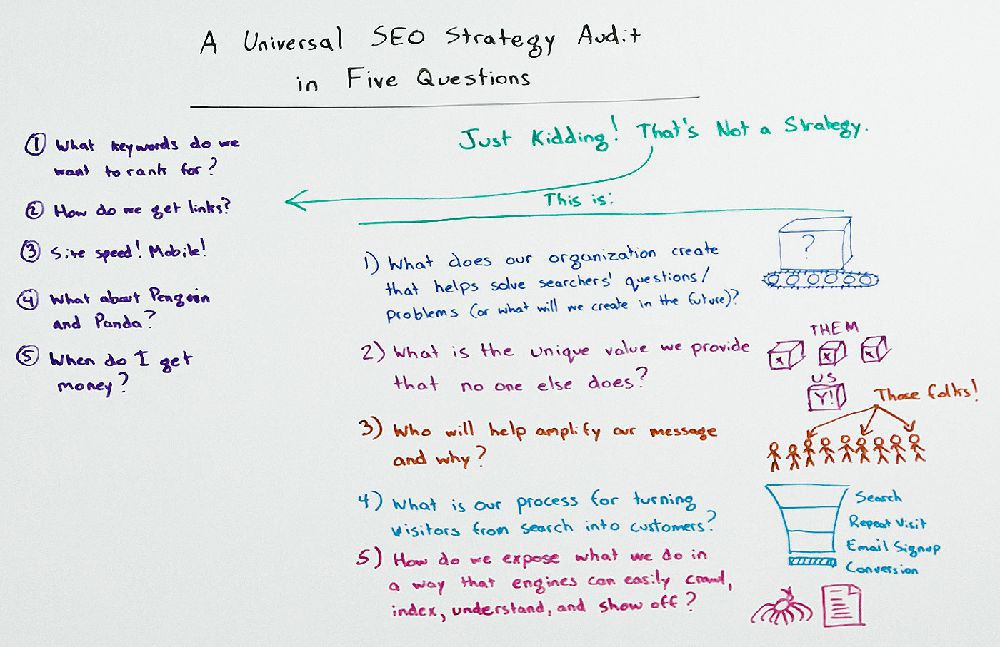 A Universal SEO Strategy Audit
in Five Questions
Just Kidding! That's Not a Strategy.
① What keywords do we
want to rank for?
② How do we get links?
③ Site speed! Mobile!
④ What about Penguin
and Panda?
⑤ When do I get
money?
This is:
1) What does our organization create
that helps solve searchers' questions/
problems (or what will we create in the future)?
?
2) What is the unique value we provide
that no one else does?
THEM
x x x
US
Y!
3) Who will help amplify our message
and why?
Those folks!
4) What is our process for turning
visitors from search into customers?
Search
Repeat Visit
Email Signup
Conversion
5) How do we expose what we do in
a way that engines can easily crawl,
index, understand, and show off?